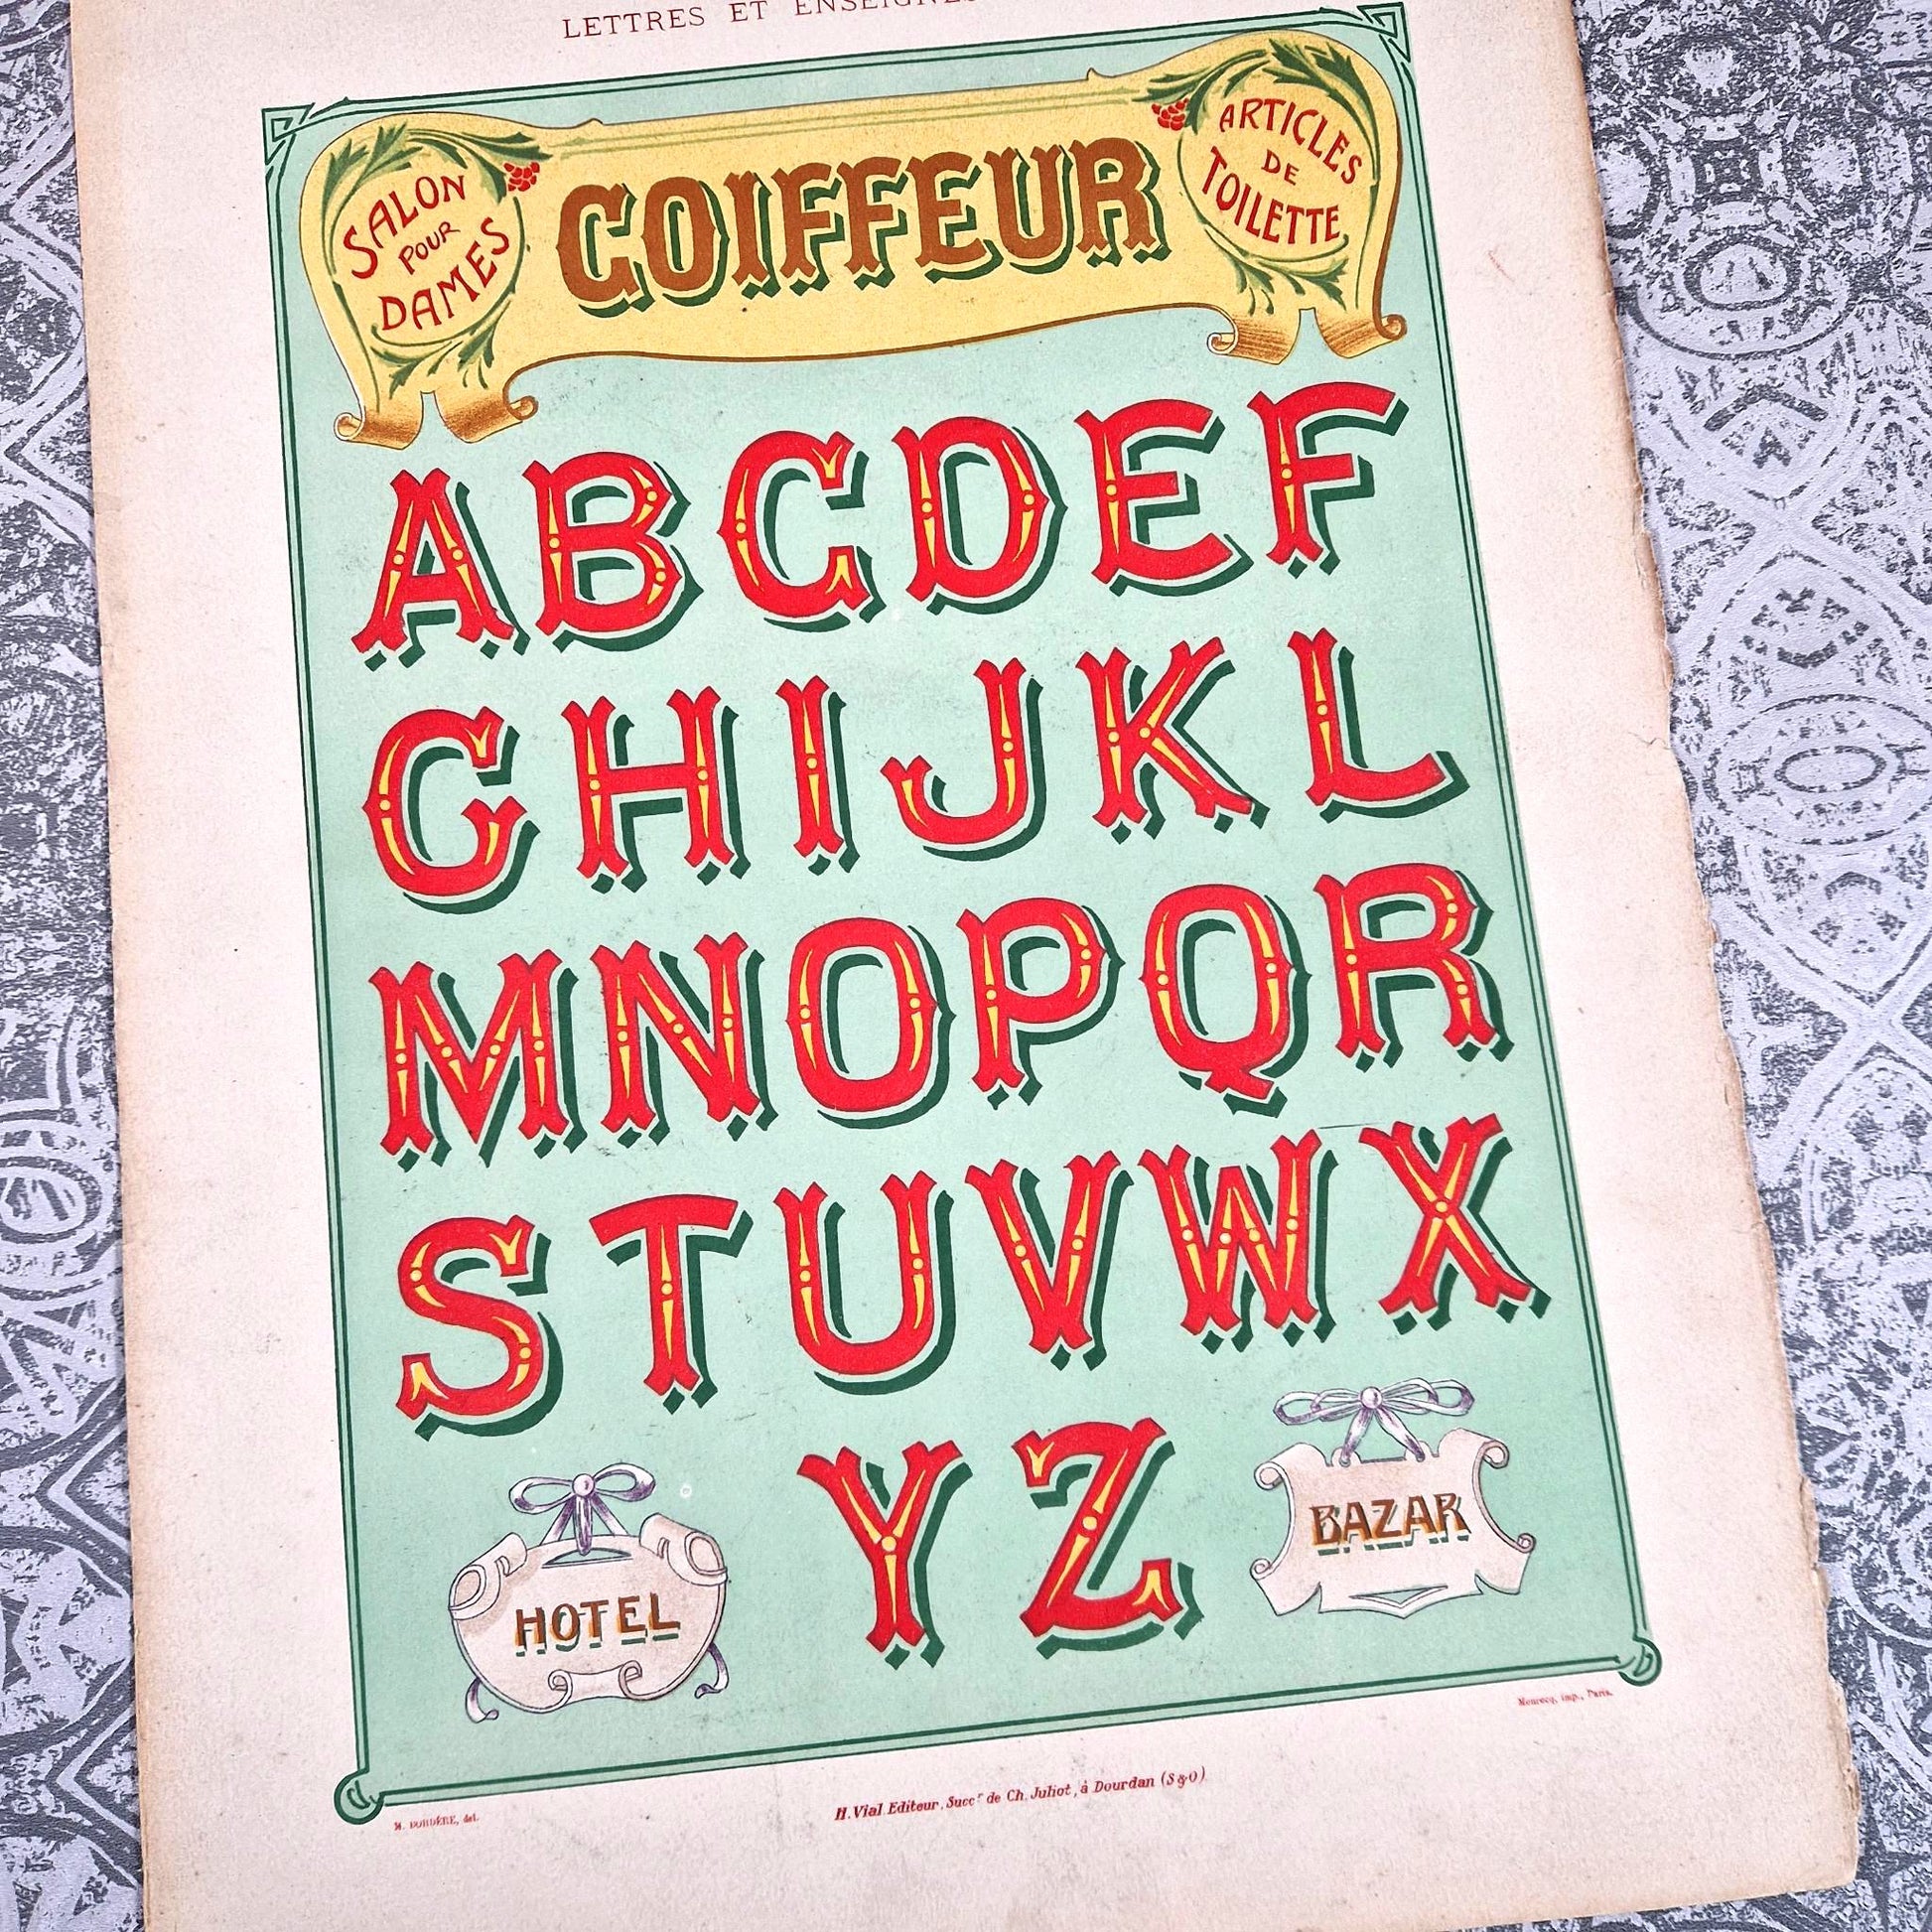 LETTRES ET ENSEIGNES
SALON
POUR
DAMES
COIFFEUR
ARTICLES
DE
TOILETTE
A B C D E F
G H I J K L
M N O P Q R
S T U V W X
Y Z
HOTEL
BAZAR
Mourocq, imp., Paris.
M. BORDÈRE, del.
H. Vial Editeur, Succr de Ch. Juliot, à Dourdan (S&O)